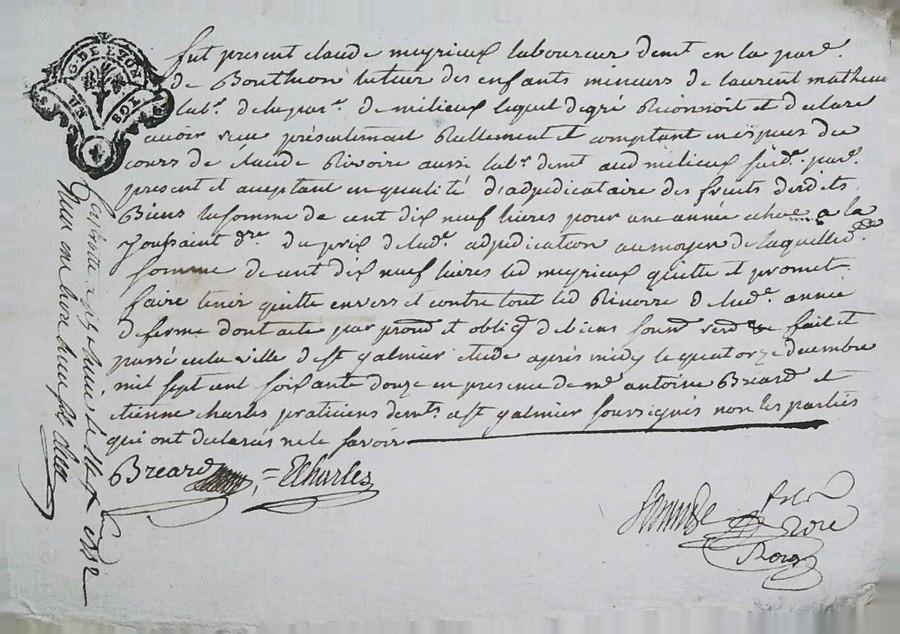 G. DE LYON
UN SOL
fut present claude meyrieux laboureur demt en la parse
de Bouthéon tuteur des enfants mineurs de laurent matheve
labr. de la par. de milieux lequel de gré Reconnoit et declare
avoir reçu présentement Reellement et comptant en espèces du
cours de claude Rivoire aussi labr. demt aud milieux susd. parse
present et aceptant en qualité d'adjudicataire des fruits desdits
Biens la somme de cent dix neuf livres pour une année echue a la
Toussaint dre du prix de lad. adjudication au moyen de laquelle d.
somme de cent dix neuf livres led meyrieux quitte et promet
faire tenir quitte envers et contre tout led Rivoire de lad. année
de ferme dont acte par prom et oblig de biens soum fait et
passé en la ville de st galmier etude après midy le quatorze decembre
mil sept cent soixante douze en presence de me antoine Breard et
etienne charles praticiens demts a st galmier soussignés non les parties
qui ont declarés ne le savoir
Breard = ECharles
a st galmier le 1772